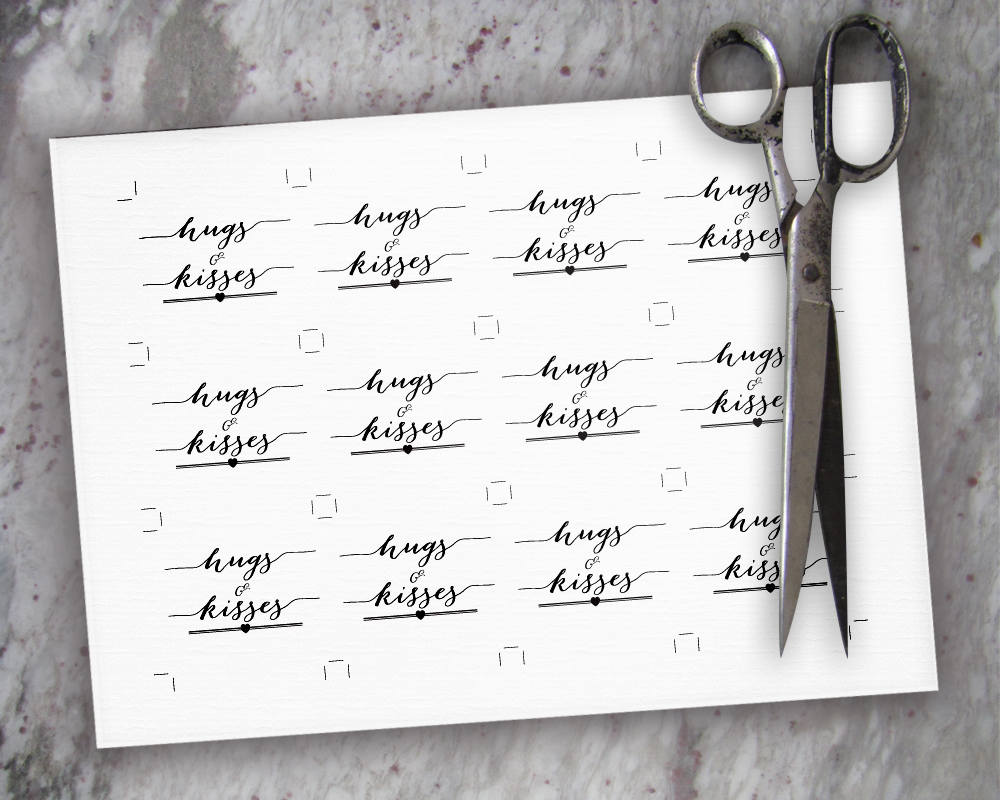 hugs
&
kisses
hugs
&
kisses
hugs
&
kisses
hugs
&
kisses
hugs
&
kisses
hugs
&
kisses
hugs
&
kisses
hugs
&
kisses
hugs
&
kisses
hugs
&
kisses
hugs
&
kisses
hugs
&
kisses